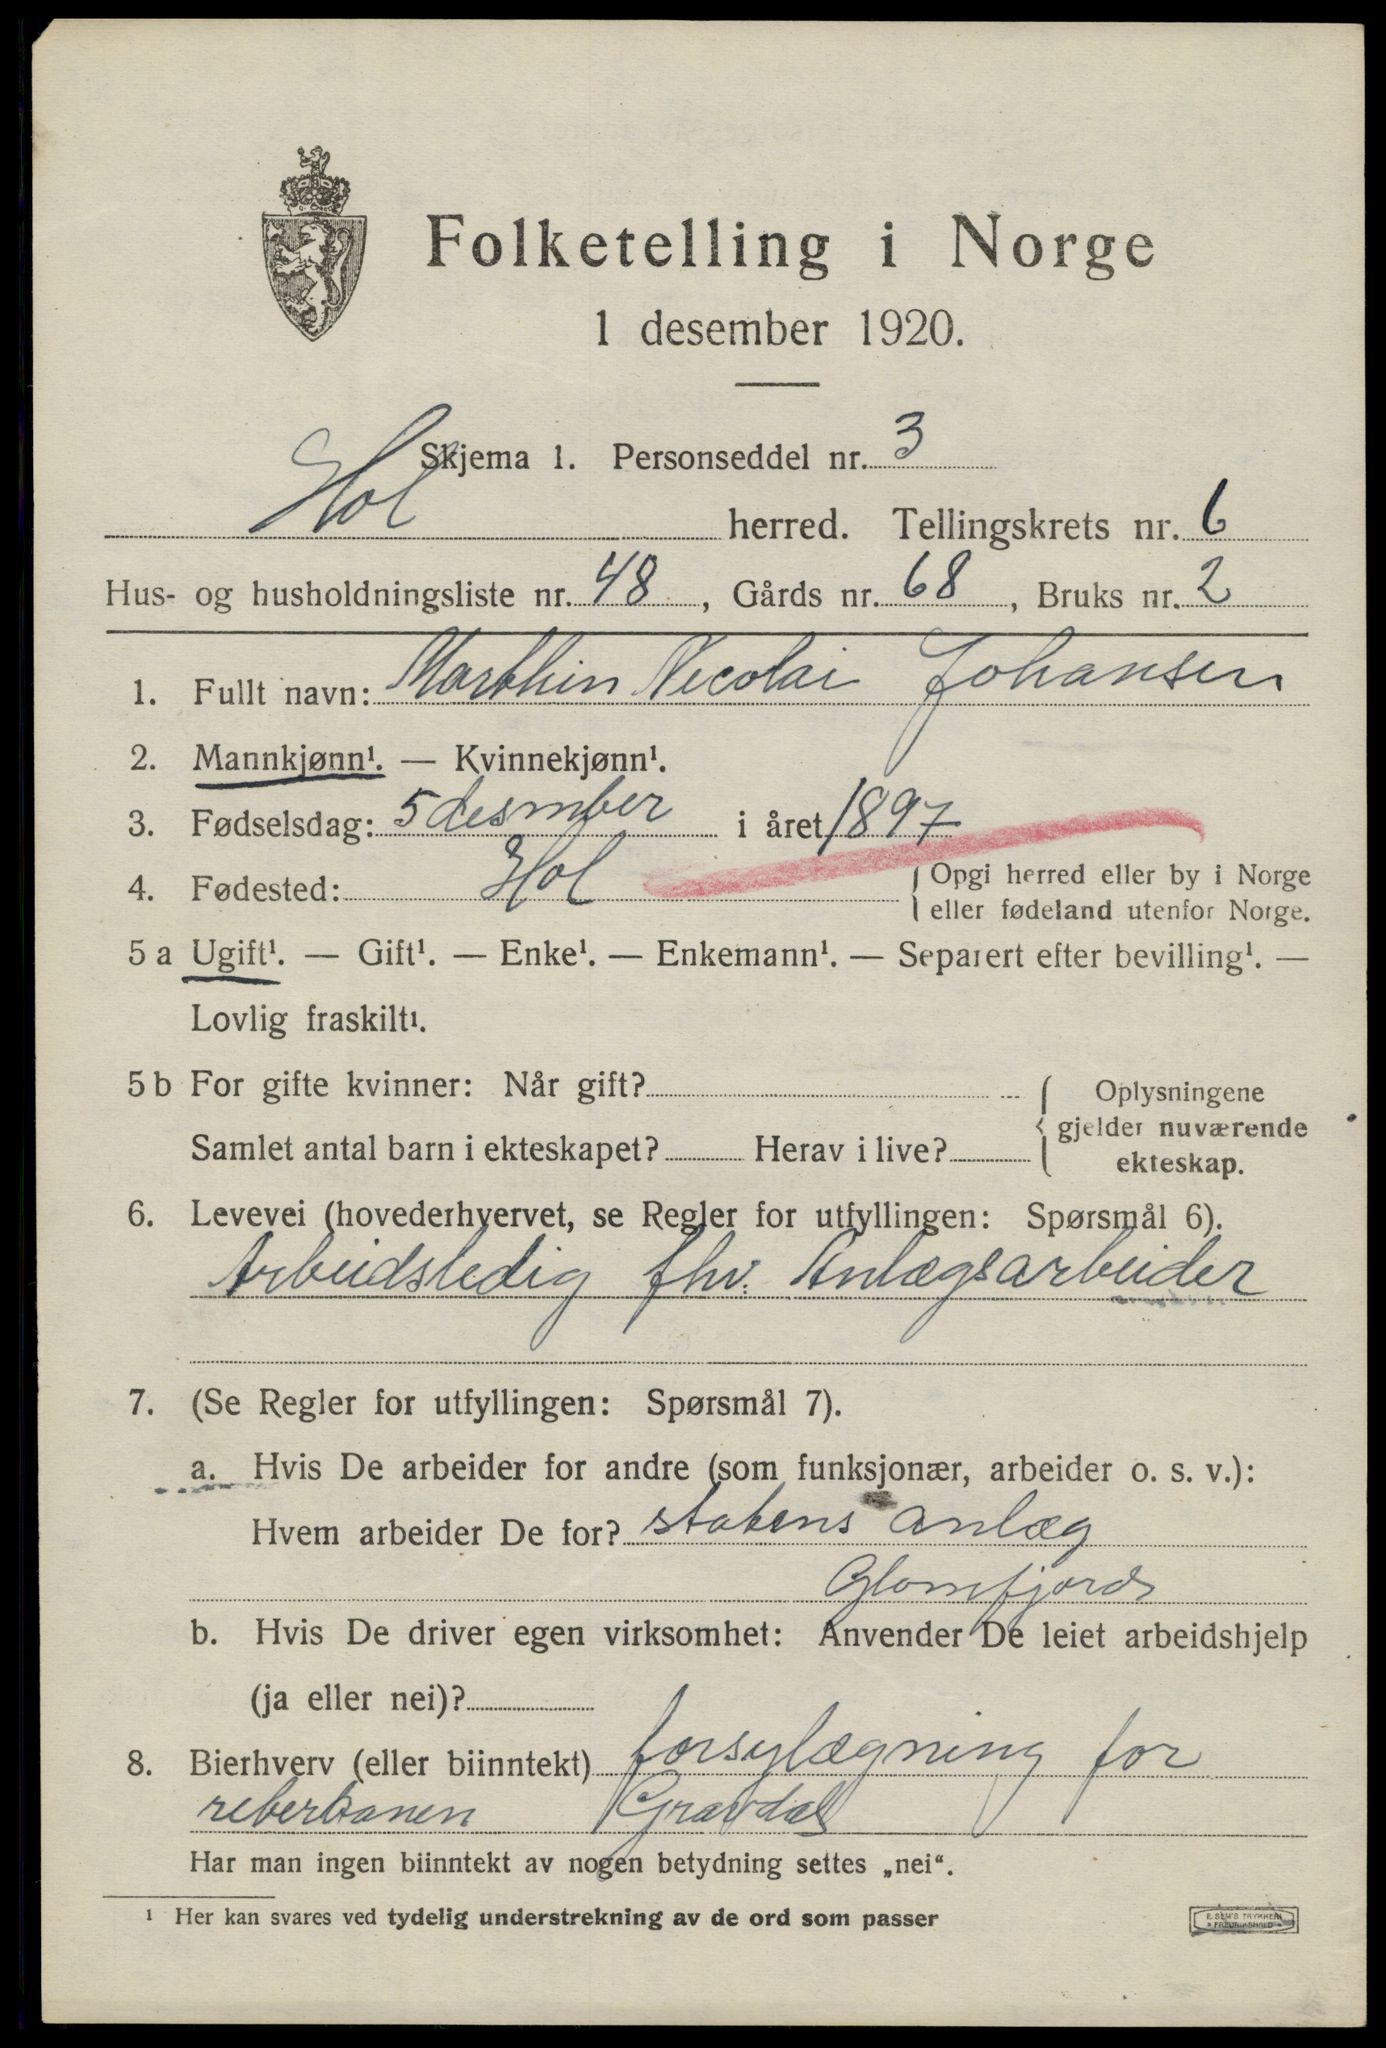 Folketelling i Norge
1 desember 1920.
Skjema 1. Personseddel nr. 3
Hol herred. Tellingskrets nr. 6
Hus- og husholdningsliste nr. 48, Gårds nr. 68, Bruks nr. 2
1. Fullt navn: Marthin Nicolai Johansen
2. Mannkjønn¹. — Kvinnekjønn¹.
3. Fødselsdag: 5 desmber i året 1897
4. Fødested: Hol { Opgi herred eller by i Norge
eller fødeland utenfor Norge.
5 a Ugift¹. — Gift¹. — Enke¹. — Enkemann¹. — Separert efter bevilling¹. —
Lovlig fraskilt¹.
5 b For gifte kvinner: Når gift? { Oplysningene
gjelder nuværende
Samlet antal barn i ekteskapet? Herav i live?
ekteskap.
6. Levevei (hovederhvervet, se Regler for utfyllingen: Spørsmål 6).
Arbeidsledig fhv. Anlægsarbeider
7. (Se Regler for utfyllingen: Spørsmål 7).
a. Hvis De arbeider for andre (som funksjonær, arbeider o. s. v.):
Hvem arbeider De for? statens anlæg
Glomfjord
b. Hvis De driver egen virksomhet: Anvender De leiet arbeidshjelp
(ja eller nei)?
8. Bierhverv (eller biinntekt) for
reberbanen Gravdal
Har man ingen biinntekt av nogen betydning settes „nei“.
¹ Her kan svares ved tydelig understrekning av de ord som passer
E. SEM'S TRYKKERI
FREDRIKSHALD